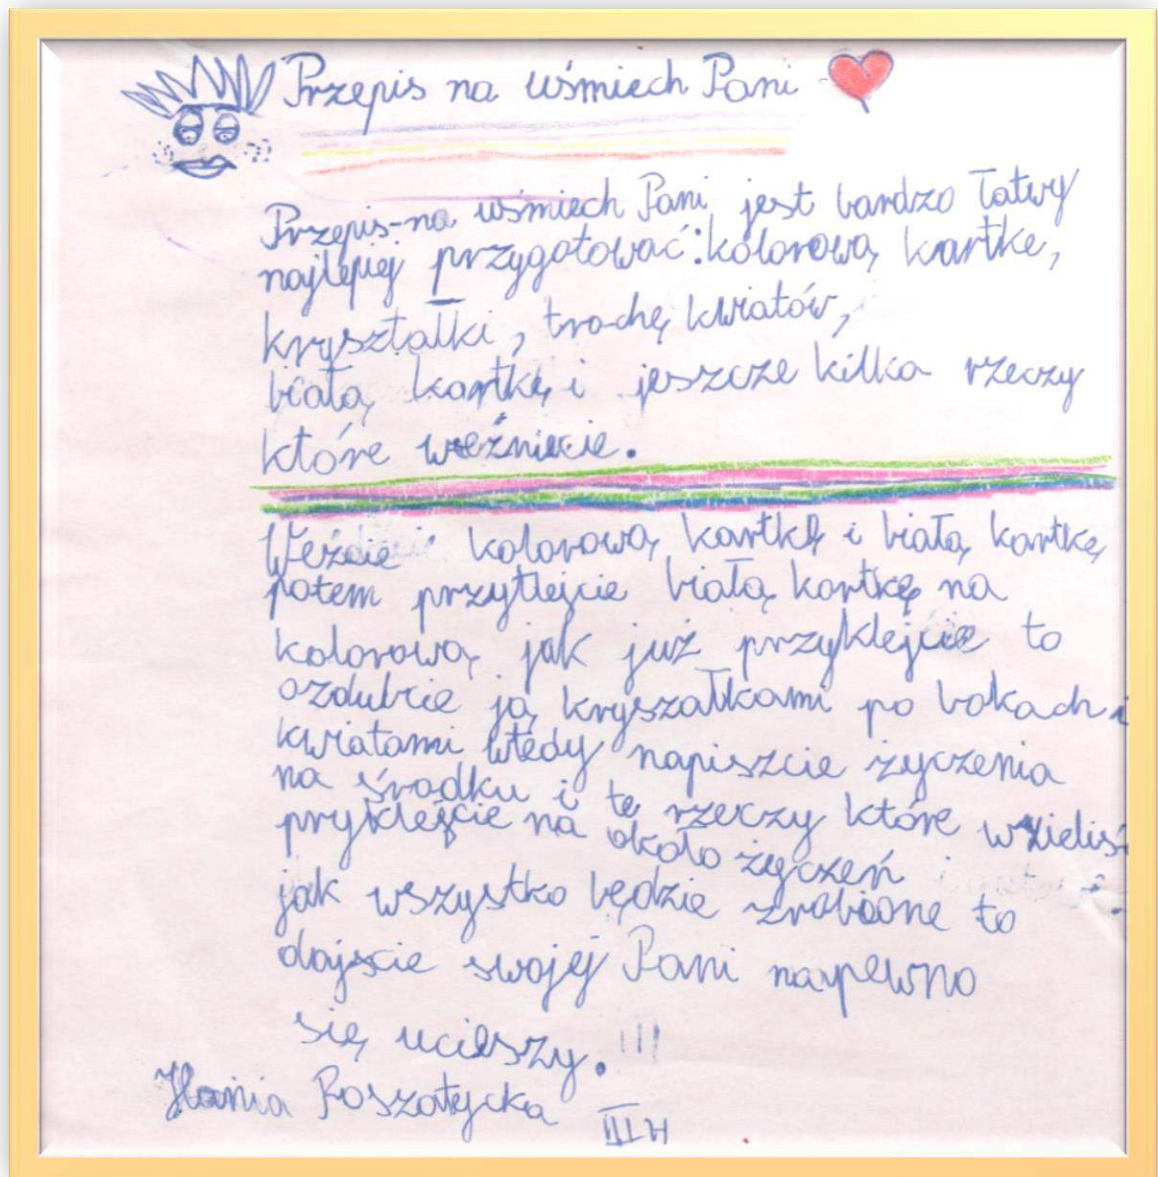 Przepis na uśmiech Pani
Przepis-na uśmiech Pani jest bardzo łatwy
najlepiej przygotować: kolorową kartke,
kryształki, trochę kwiatów,
białą kartkę i jeszcze kilka rzeczy
które weźniecie.
Weźcie kolorową kartkę i białą kartkę
potem przytlejcie białą kartkę na
kolorową jak już przyklejcie to
ozdubcie ją kryszałkami po bokach i
kwiatami wtedy napiszcie życzenia
na środku i te rzeczy które wzieliś
pryklejcie na około życzeń
jak wszystko będzie zrobione to
dajście swojej Pani napewno
się ucieszy. !!!
Hania Roszatycka III H